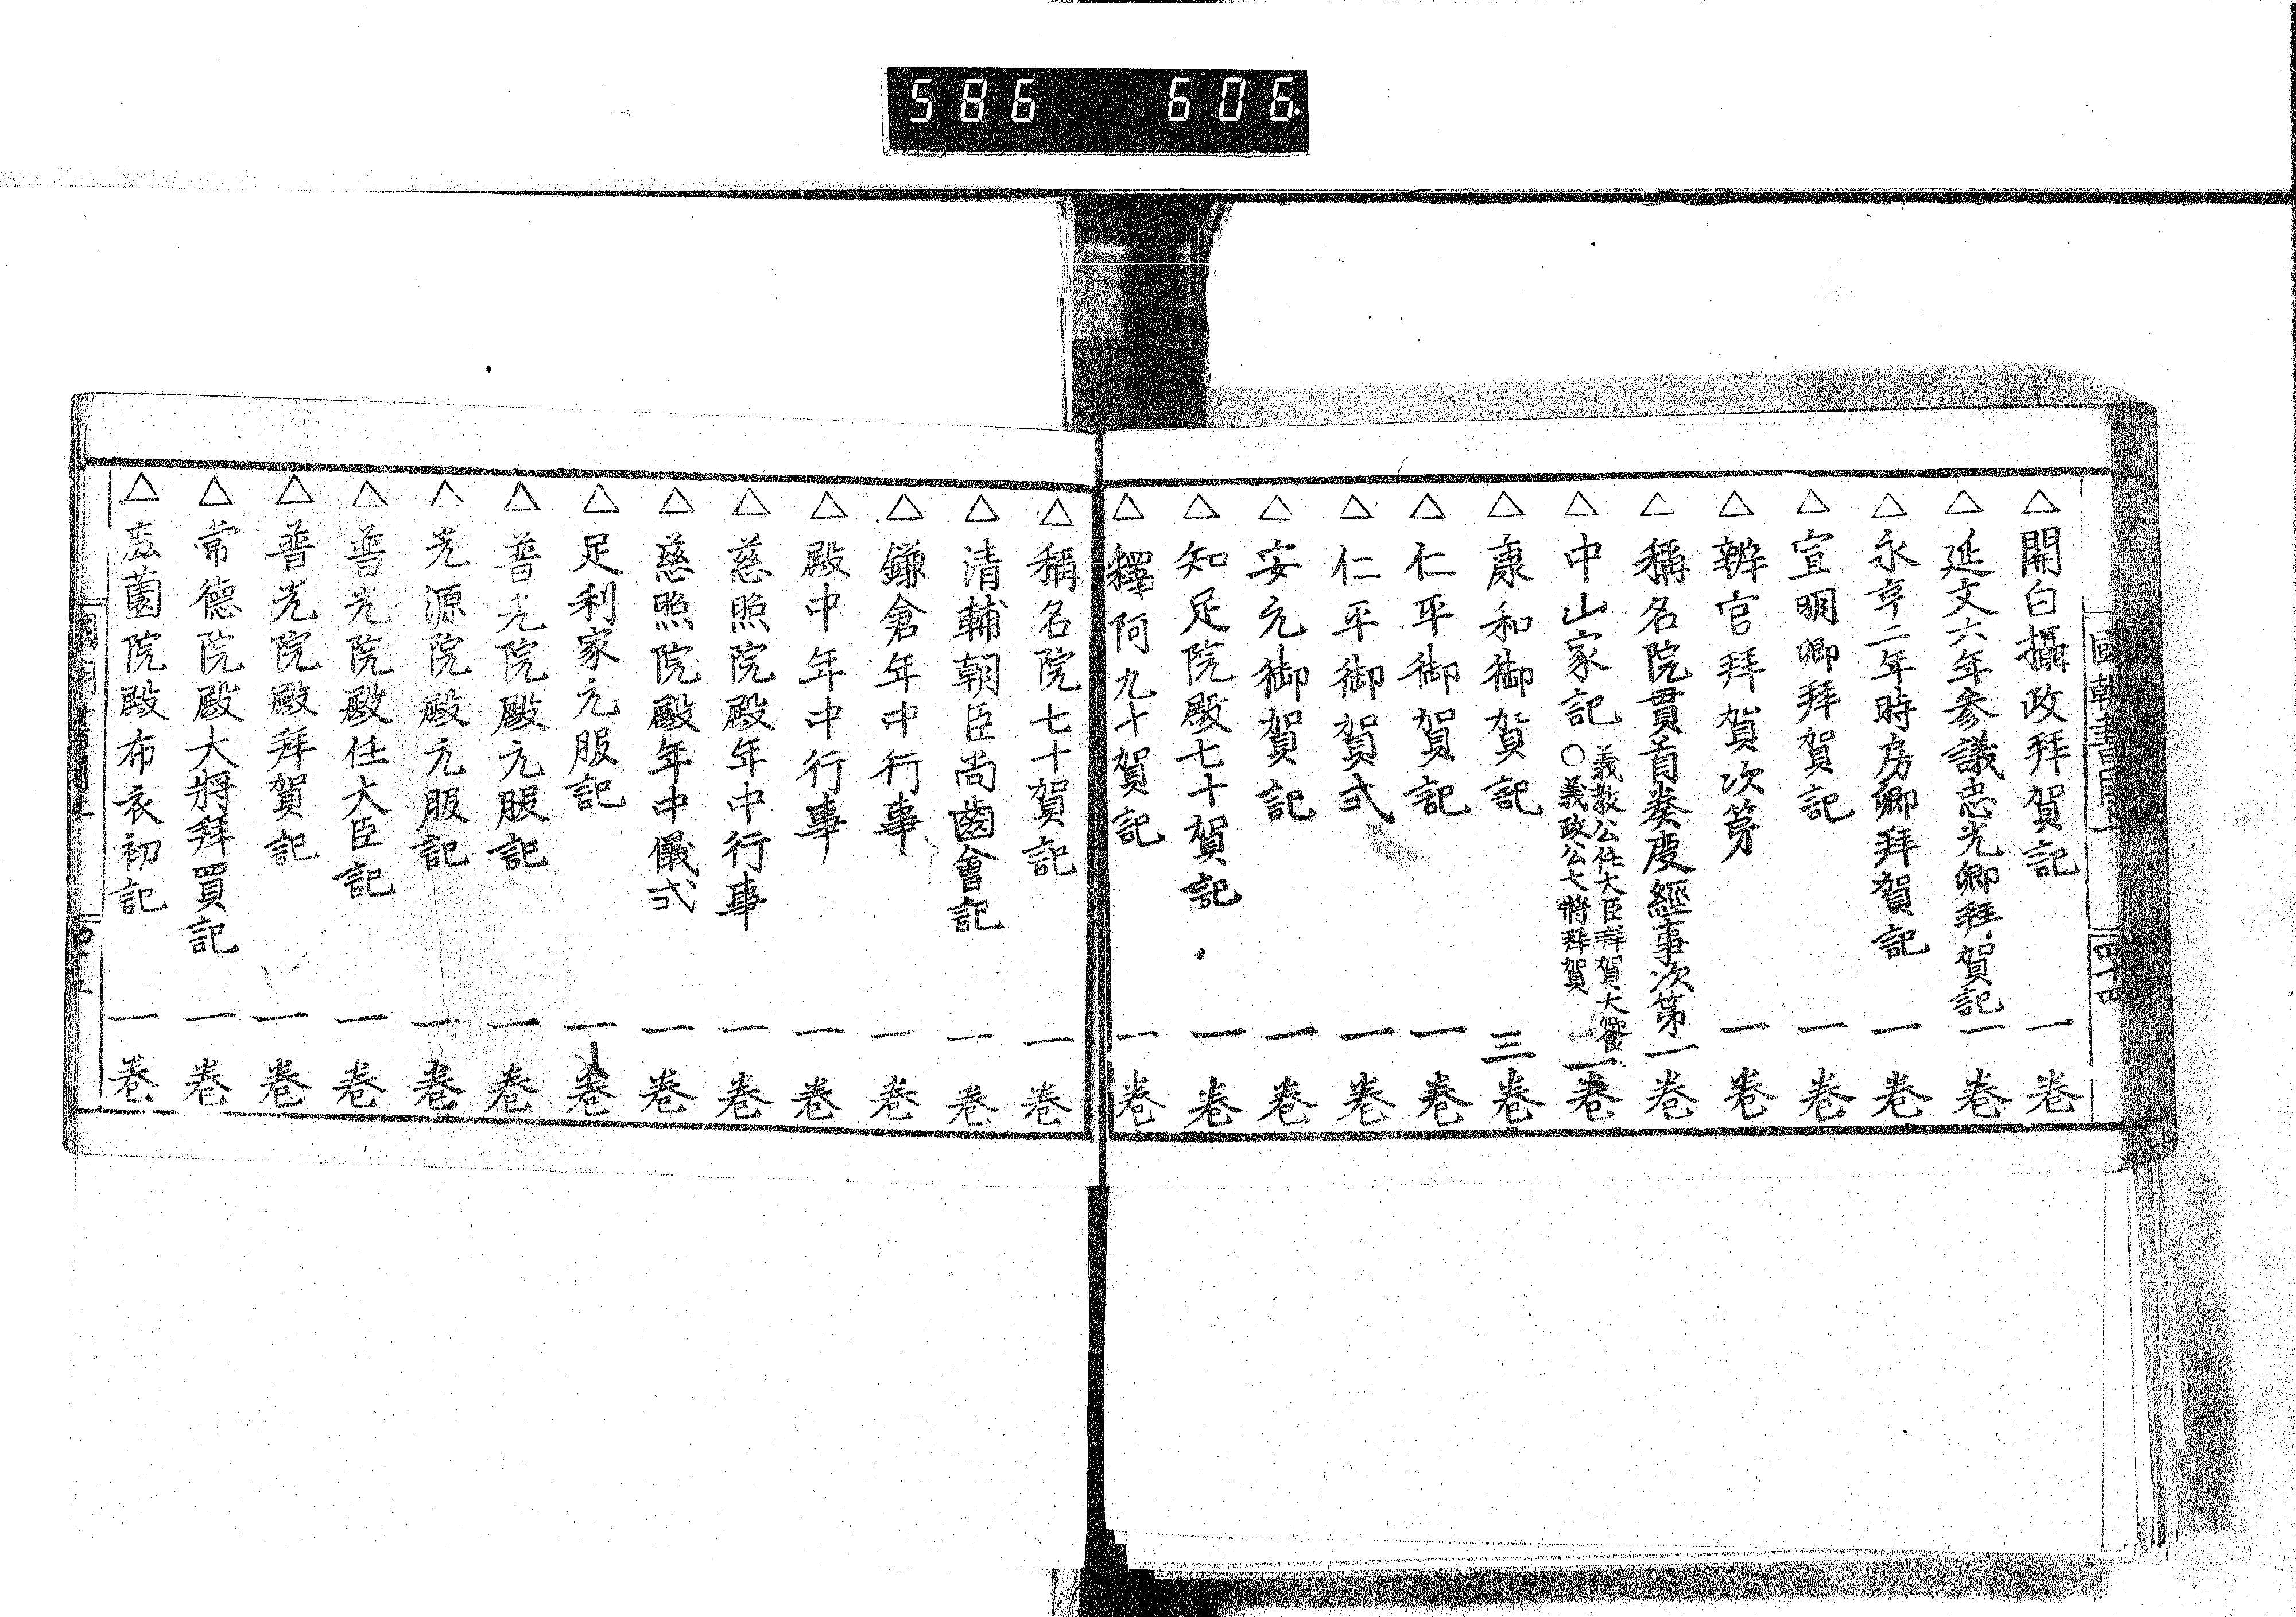 586 606.
國朝書目
四十四
△開白攝政拜賀記 一卷
△延文六年參議忠光卿拜賀記 一卷
△永亨二年時房卿拜賀記 一卷
△宣明卿拜賀記 一卷
△辨官拜賀次第 一卷
△稱名院貫首奏慶經事次第 一卷
△中山家記 義教公任大臣拜賀大饗 ○義政公大將拜賀 一卷
△康和御賀記 三卷
△仁平御賀記 一卷
△仁平御賀式 一卷
△安元御賀記 一卷
△知足院殿七十賀記 一卷
△釋阿九十賀記 一卷
△稱名院七十賀記 一卷
△清輔朝臣尚齒會記 一卷
△鎌倉年中行事 一卷
△殿中年中行事 一卷
△慈照院殿年中行事 一卷
△慈照院殿年中儀式 一卷
△足利家元服記 一卷
△普光院殿元服記 一卷
△光源院殿元服記 一卷
△普光院殿任大臣記 一卷
△普光院殿拜賀記 一卷
△常德院殿大將拜賀記 一卷
△院殿布衣初記 一卷